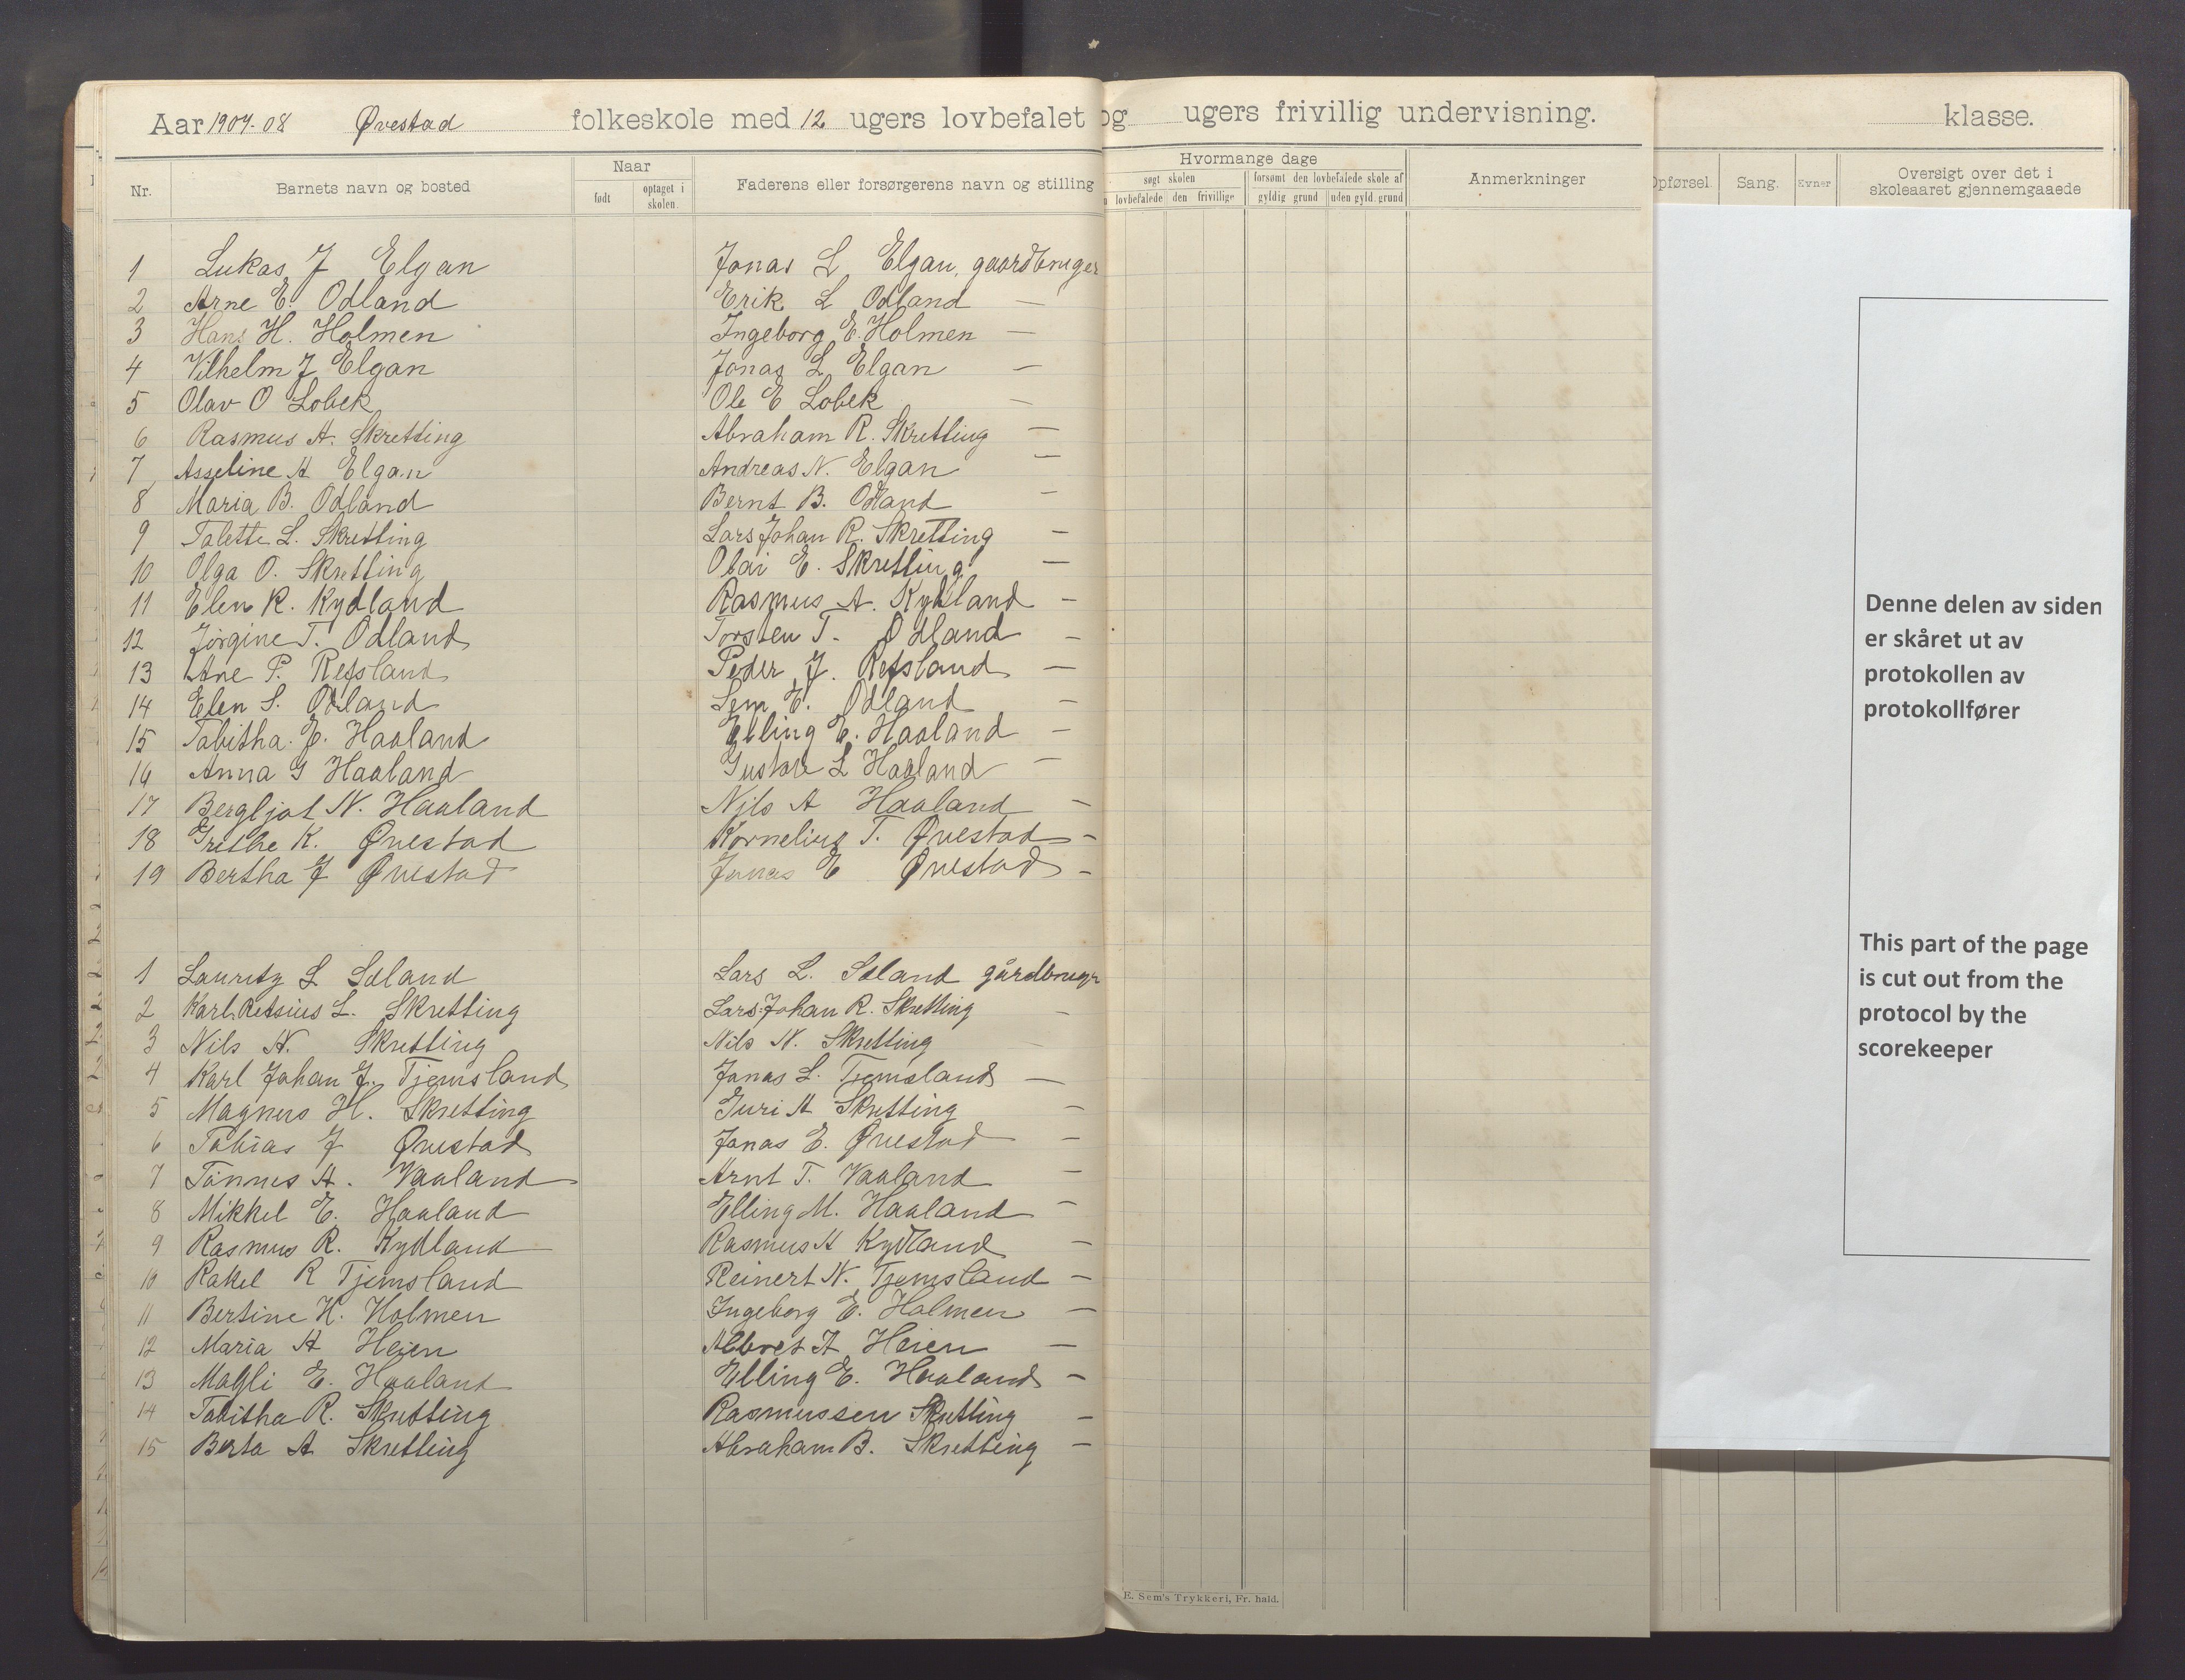 Aar 1907-08 Øvestad folkeskole med 12 ugers lovbefalet og ugers frivillig undervisning. klasse.
Nr. Barnets navn og bosted Naar født optaget i skolen. Faderens eller forsørgerens navn og stilling
Hvormange dage søgt skolen lovbefalede den frivillige forsømt den lovbefalede skole af gyldig grund uden gyld. grund Anmerkninger
Opførsel. Sang. Evner Oversigt over det i skoleaaret gjennemgaaede
1 Lukas J Elgan Jonas L Elgan, gaardbruger
2 Arne E. Odland Erik L Odland —
3 Hans H. Holmen Ingeborg E. Holmen —
4 Vilhelm J Elgan Jonas L Elgan —
5 Olav O Lobek Ole E Lobek —
6 Rasmus A. Skretting Abraham R. Skretting —
7 Asseline A Elgan Andreas N. Elgan —
8 Maria B. Odland Bernt B. Odland —
9 Talette L. Skretting Lars Johan R. Skretting —
10 Olga O. Skretting Olai E. Skretting —
11 Elen R. Kydland Rasmus A. Kydland —
12 Jørgine T. Odland Torsten T. Odland —
13 Ane P. Refsland Peder J. Refsland —
14 Elen S. Odland Sem E. Odland —
15 Tabitha E. Haaland Elling E. Haaland —
16 Anna G Haaland Gustav L Haaland —
17 Bergljot N. Haaland Nils A Haaland —
18 Grethe K. Øvestad Kornelius T. Øvestad —
19 Bertha J Øvestad Jonas E Øvestad —
1 Lauritz L Sæland Lars L. Sæland gårdbruger
2 Karl Retsius L. Skretting Lars Johan R. Skretting —
3 Nils N. Skretting Nils N. Skretting
4 Karl Johan J. Tjemsland Jonas L. Tjemsland —
5 Magnus H. Skretting Guri A Skretting —
6 Tobias J Øvestad Jonas E. Øvestad —
7 Tønnes A. Vaaland Arnt T. Vaaland —
8 Mikkel E. Haaland Elling M. Haaland —
9 Rasmus R. Kydland Rasmus A Kydland —
10 Rakel R Tjemsland Reinert N. Tjemsland —
11 Bertine H. Holmen Ingeborg E. Holmen —
12 Maria A Heien Albret A Heien —
13 Magli E. Haaland Elling E. Haaland —
14 Tabitha R. Skretting Rasmussen Skretting —
15 Berta A Skretting Abraham B. Skretting —
E. Sem's Trykkeri, Fr. hald.
Denne delen av siden
er skåret ut av
protokollen av
protokollfører
This part of the page
is cut out from the
protocol by the
scorekeeper